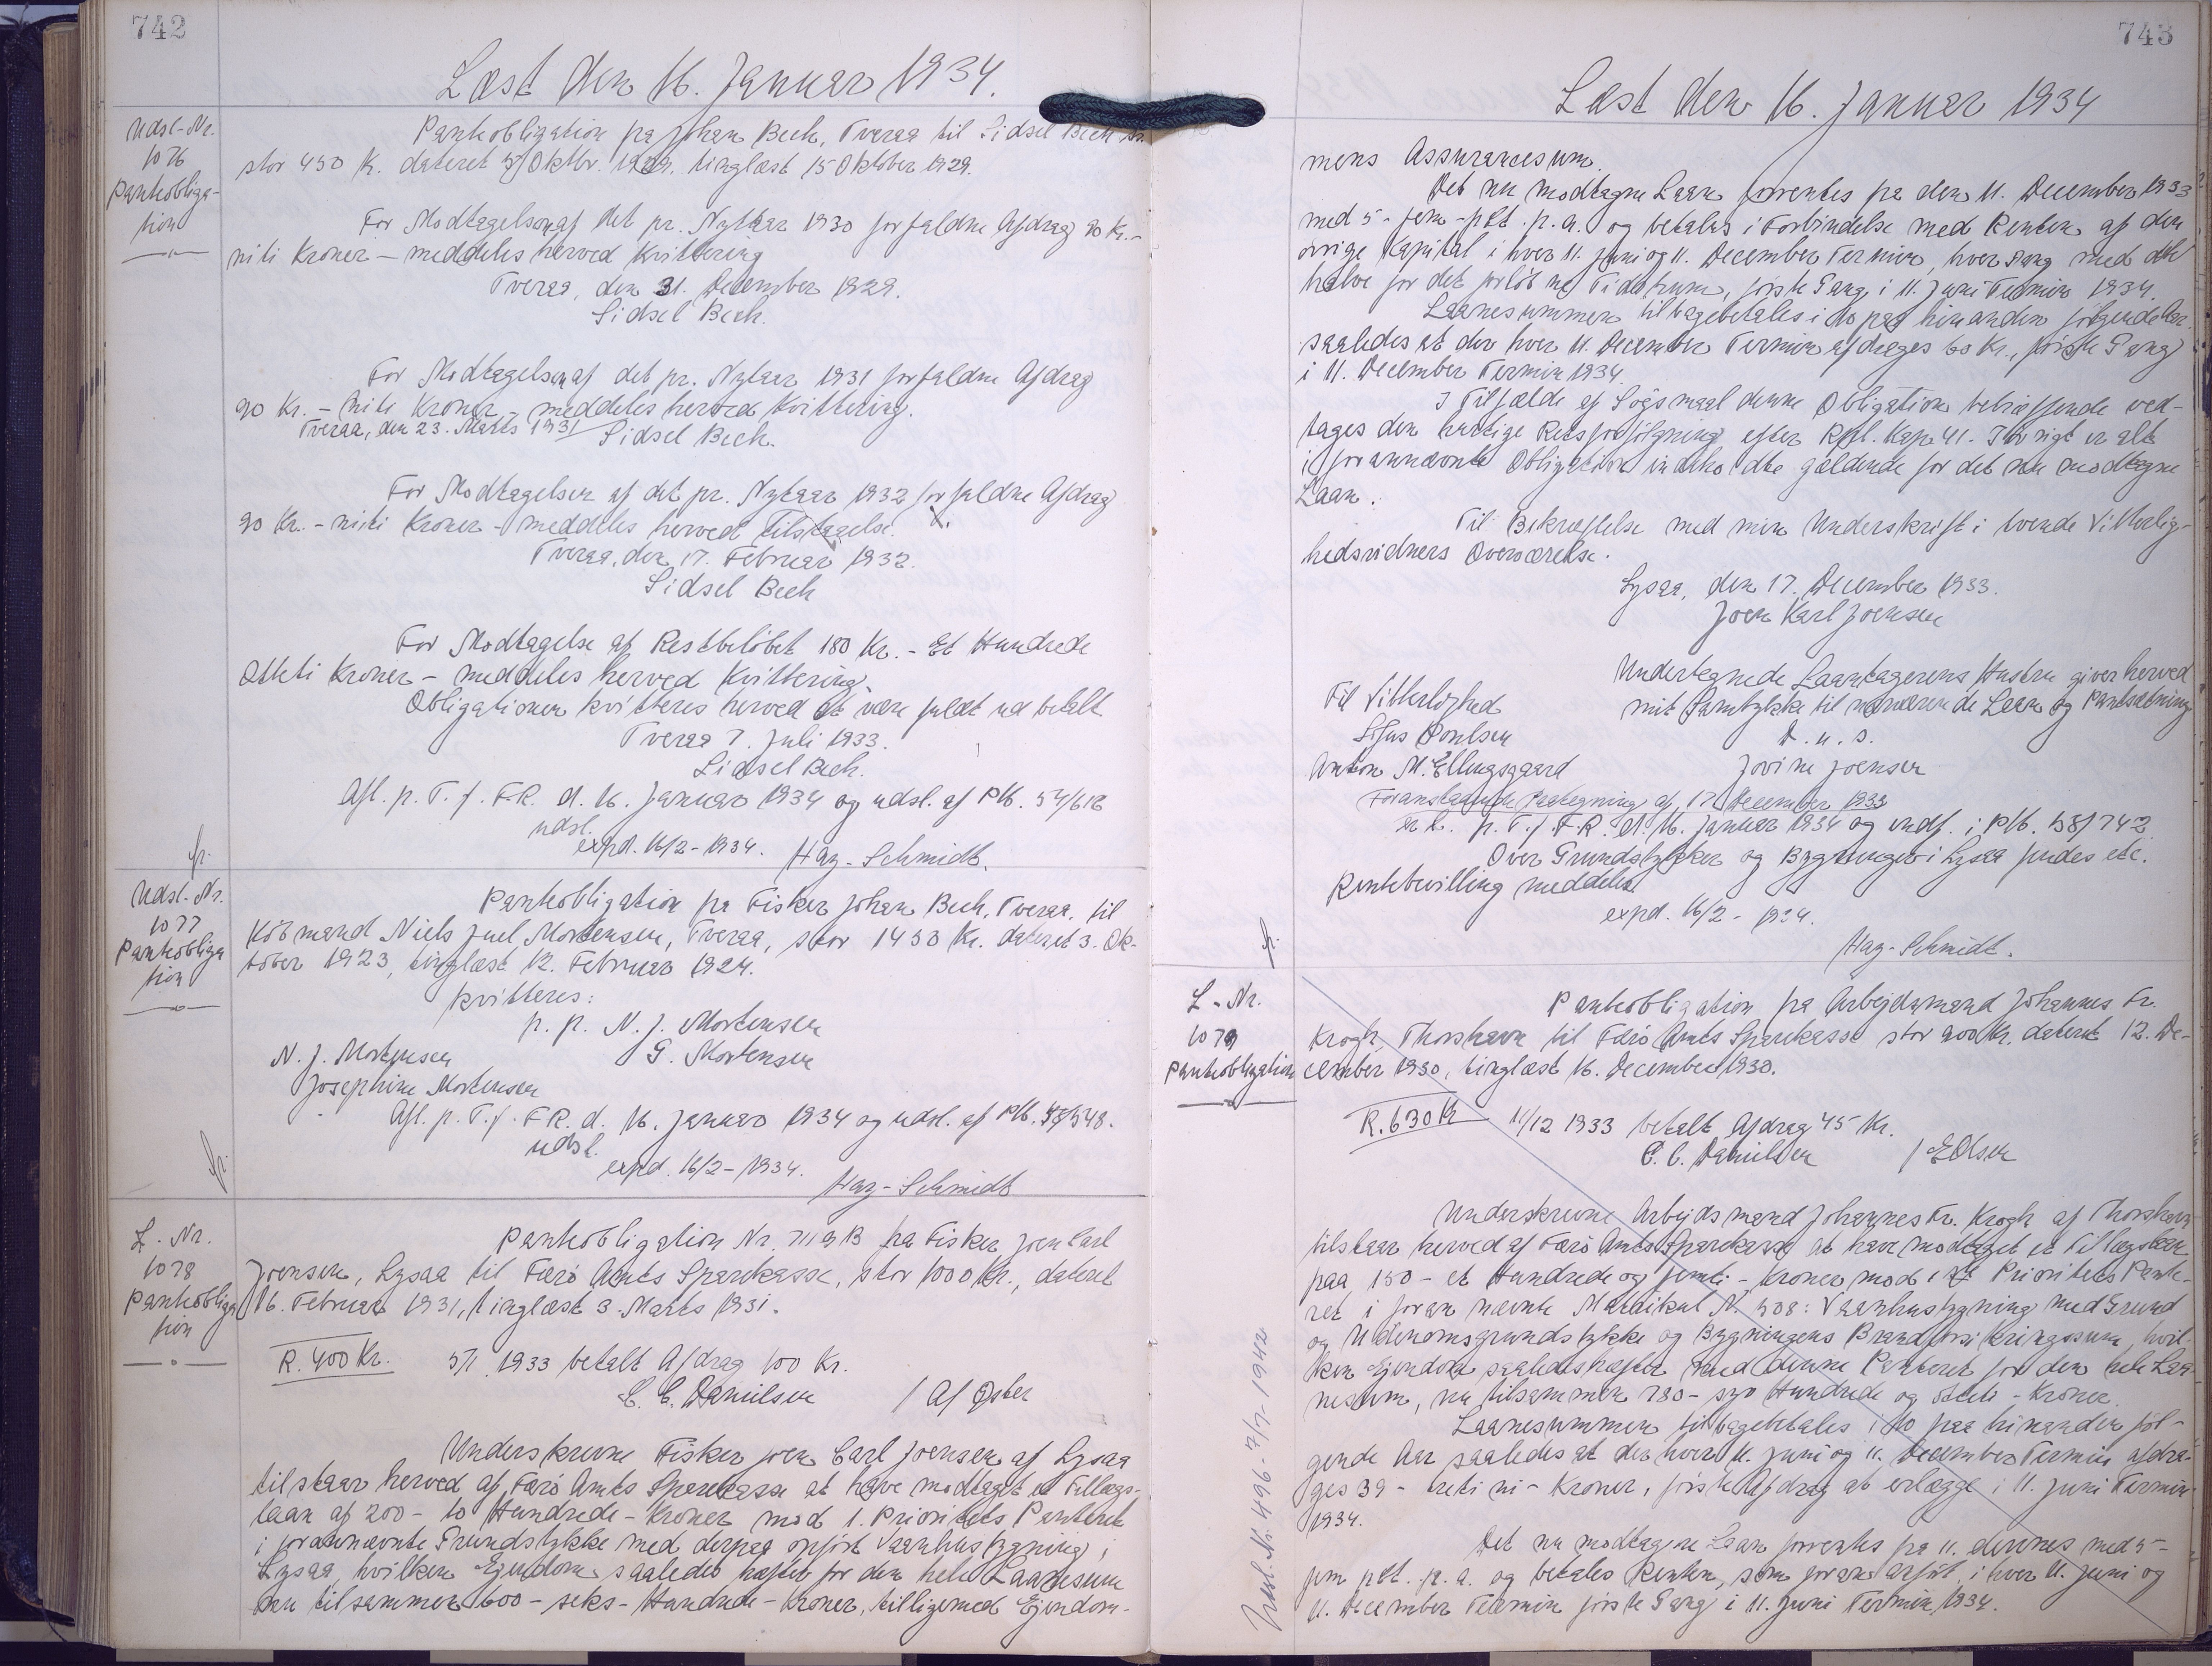 742
Læst den 16. Januar 1934.
Udsl-Nr.
1076
Pantobliga-
tion
Pantobligation fra Johan Bech, Tveraa til Sidsel Bech
stor 450 K. dateret Oktbr. 1929. tinglæst 15 Oktober 1929.
For Modtagelsen af det pr. Nytaar 1930 forfaldne Afdrag 90 Kr.-
niti Kroner - meddeles herved Kvittering
Tveraa, den 31. December 1929.
Sidsel Bech.
For Modtagelsen af det pr. Nytaar 1931 forfaldne Afdrag
90 Kr. - niti Kroner - meddeles herved Kvittering.
Tveraa, den 23. Marts 1931 Sidsel Bech.
For Modtagelsen af det pr. Nytaar 1932 forfaldne Afdrag
90 Kr. - niti Kroner - meddeles herved Tilstaaelse.
Tveraa, den 17. Februar 1932.
Sidsel Bech
For Modtagelse af Restbeløbet 180 Kr. - Et Hundrede
Otteti Kroner - meddeles herved Kvittering.
Obligationen kvitteres herved at være fuldt ud betalt
Tveraa 7. Juli 1933.
Sidsel Bech.
Afl. p. T. f. F.R. d. 16. Januar 1934 og udsl. af Ptb. 54/618
udsl.
expd. 16/2-1934. Hay-Schmidt.
Udsl.-Nr.
1077
Pantobliga
tion
Pantobligation fra Fisker Johan Bech, Tveraa, til
Købmand Niels Juel Mortensen, Tveraa, stor 1450 Kr. dateret 3. Ok-
tober 1923, tinglæst 12. Februar 1924.
kvitteres:
p. p. N. J. Mortensen
N. J. Mortensen G. Mortensen
Josephine Mortensen
Afl. p. T. f. F.R. d. 16. Januar 1934 og udsl. af Ptb.
udsl.
expd. 16/2-1934.
Hay-Schmidt
L. Nr.
1078
Pantobliga
tion
Pantobligation Nr. fra Fisker Joen Carl
Joensen, Lysaa til Færø Amts Sparekasse, stor 1000 Kr., dateret
16. Februar 1931, tinglæst 3. Marts 1931.
R. 400 Kr. 5/1 1933 betalt Afdrag 100 Kr.
C. C. Danielsen / Af Øster
Underskrevne Fisker Joen Carl Joensen af Lysaa
tilstaar herved af Færø Amts Sparekasse at have modtaget et Tillægs-
laan af 200 - to Hundrede - Kroner mod 1. Prioritets Panteret
i forannævnte Grundstykke med derpaa opført Vaanhusbygning i
Lysaa, hvilken Ejendom saaledes hæfter for den hele Laanesum
nu tilsammen 600 - seks - Hundrede - Kroner, tilligemed Ejendom-
743
Læst den 16. Januar 1934
mens Assurancesum.
Det nu modtagne Laan forrentes fra den 11. December 1933
med 5 - fem - pCt. p. a. og betales i Forbindelse med Renten af den
øvrige Kapital i hver 11. Juni og 11. December Termin, hver Gang med det
halve for det forløbne Tidsrum, første Gang i 11. Juni Termin 1934.
Laanesummen tilbagebetales i 10 paa hinanden følgende Aar
saaledes at der hver 11. December Termin afdrages 60 Kr., første Gang
i 11. December Termin 1934.
I Tilfælde af Søgsmaal denne Obligation betræffende ved-
tages den hurtige Retsforfølgning efter Rpl. Kap. 41. Iøvrigt er alt
i forannævnte Obligation indeholdte gældende for det nu modtagne
Laan.
Til Bekræftelse med min Underskrift i tvende Vitterlig-
hedsvidners Overværelse.
Lysaa, den 17. December 1933.
Joen Karl Joensen
Undertegnede Laantagerens Hustru giver herved
mit Samtykke til nærværende Laan og Pantsætning
D. u. s.
Jovine Joensen
Til Vitterlighed
Sofus Poulsen
Anton M. Ellingsgaard
Foranstaaende Paategning af 17. December 1933
er l. p. T. f. F.R. d. 16. Januar 1934 og indf. i Ptb. 58/742
Over Grundstykker og Bygninger i Lysaa findes etc.
Rentebevilling meddeles
expd. 16/2 - 1934.
Hay-Schmidt.
L-Nr.
1079
Pantobligation
Pantobligation fra Arbejdsmand Johannes Fr.
Krogh, Thorshavn til Færø Amts Sparekasse stor 900 Kr. dateret 12. De-
cember 1930, tinglæst 16. December 1930.
R. 630 Kr 11/12 1933 betalt Afdrag 45 Kr.
C. C. Danielsen / E Olsen
Underskrevne Arbejdsmand Johannes Fr. Krogh af Thorshavn
tilstaar herved af Færø Amts Sparekasse at have modtaget et Tillægslaan
paa 150 - et Hundrede og femti - Kroner mod 1ste Prioritets Pante-
ret i forannævnte Matrikul N. 508: Vaanhusbygning med Grund
og Udenomsgrundstykke og Bygningens Brandforsikringssum, hvil-
ken Ejendom saaledes hæfter med denne Panteret for den hele Laa-
nesum, nu tilsammen 780 - syv Hundrede og otteti - Kroner.
Laanesummen tilbagebetales i 10 paa hinanden føl-
gende Aar saaledes at der hver 11. Juni og 11. December Termin afdra-
ges 39 - treti ni - Kroner, første Afdrag at erlægge i 11. Juni Termin
1934.
Det nu modtagne Laan forrentes fra 11. dennes med 5 -
fem pCt. p. a. og betales Renten, som foran anført, i hver 11. Juni og
11. December Termin første Gang i 11. Juni Termin 1934.
Udsl. Nr. 496 - 7/7 - 1942